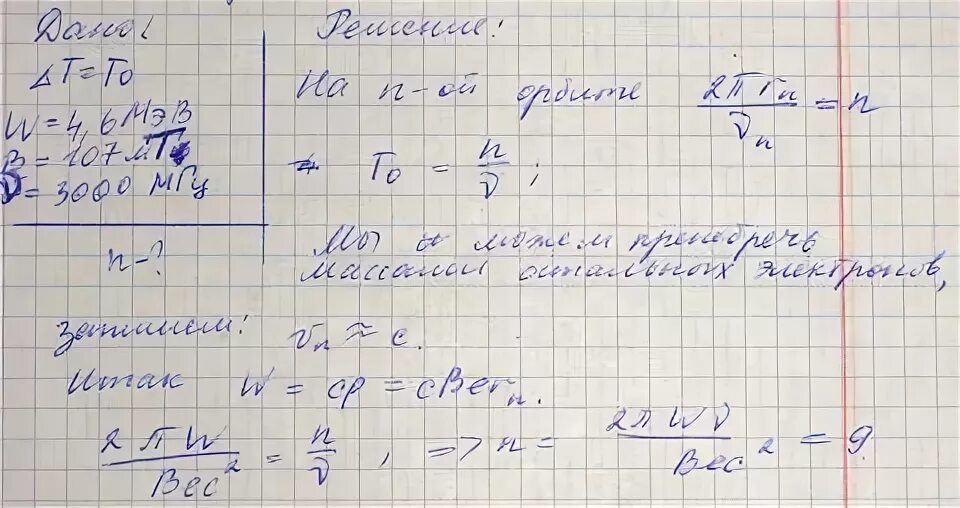 Дано:
ΔT = T₀
W = 4,6 МэВ
B = 107 мТ
ν = 3000 МГц
n - ?
Решение:
На n-ой орбите 2πrₙ/vₙ = n
T₀ = n/ν ;
Мы и можем пренебречь
массой остальных электронов,
Запишем: vₙ ≈ c.
Итак W = cp = cBerₙ.
2πW/Bec² = n/ν , => n = 2πWν/Bec² = 9